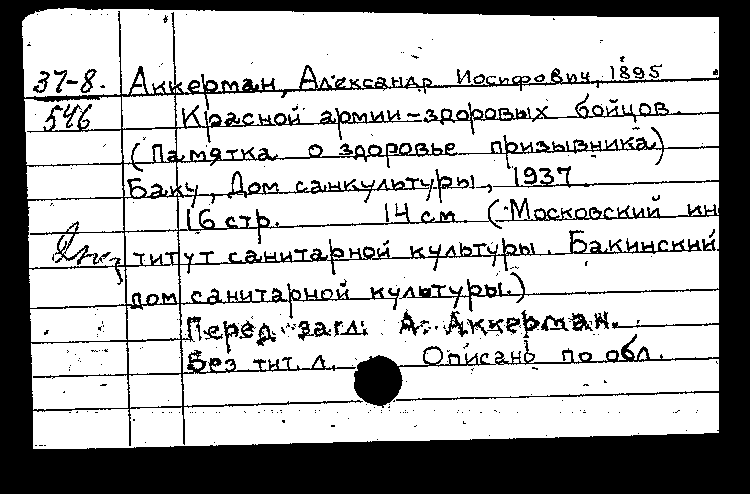 37-8. Аккерман, Александр Иосифович, 1895
546 Красной армии-здоровых бойцов.
(Памятка о здоровье призывника)
Баку, Дом санкультуры, 1937
16 стр. 14 см. (Московский ин
2экз титут санитарной культуры. Бакинский
дом санитарной культуры.)
Перед загл: А. Аккерман.
Без тит. л. Описано по обл.